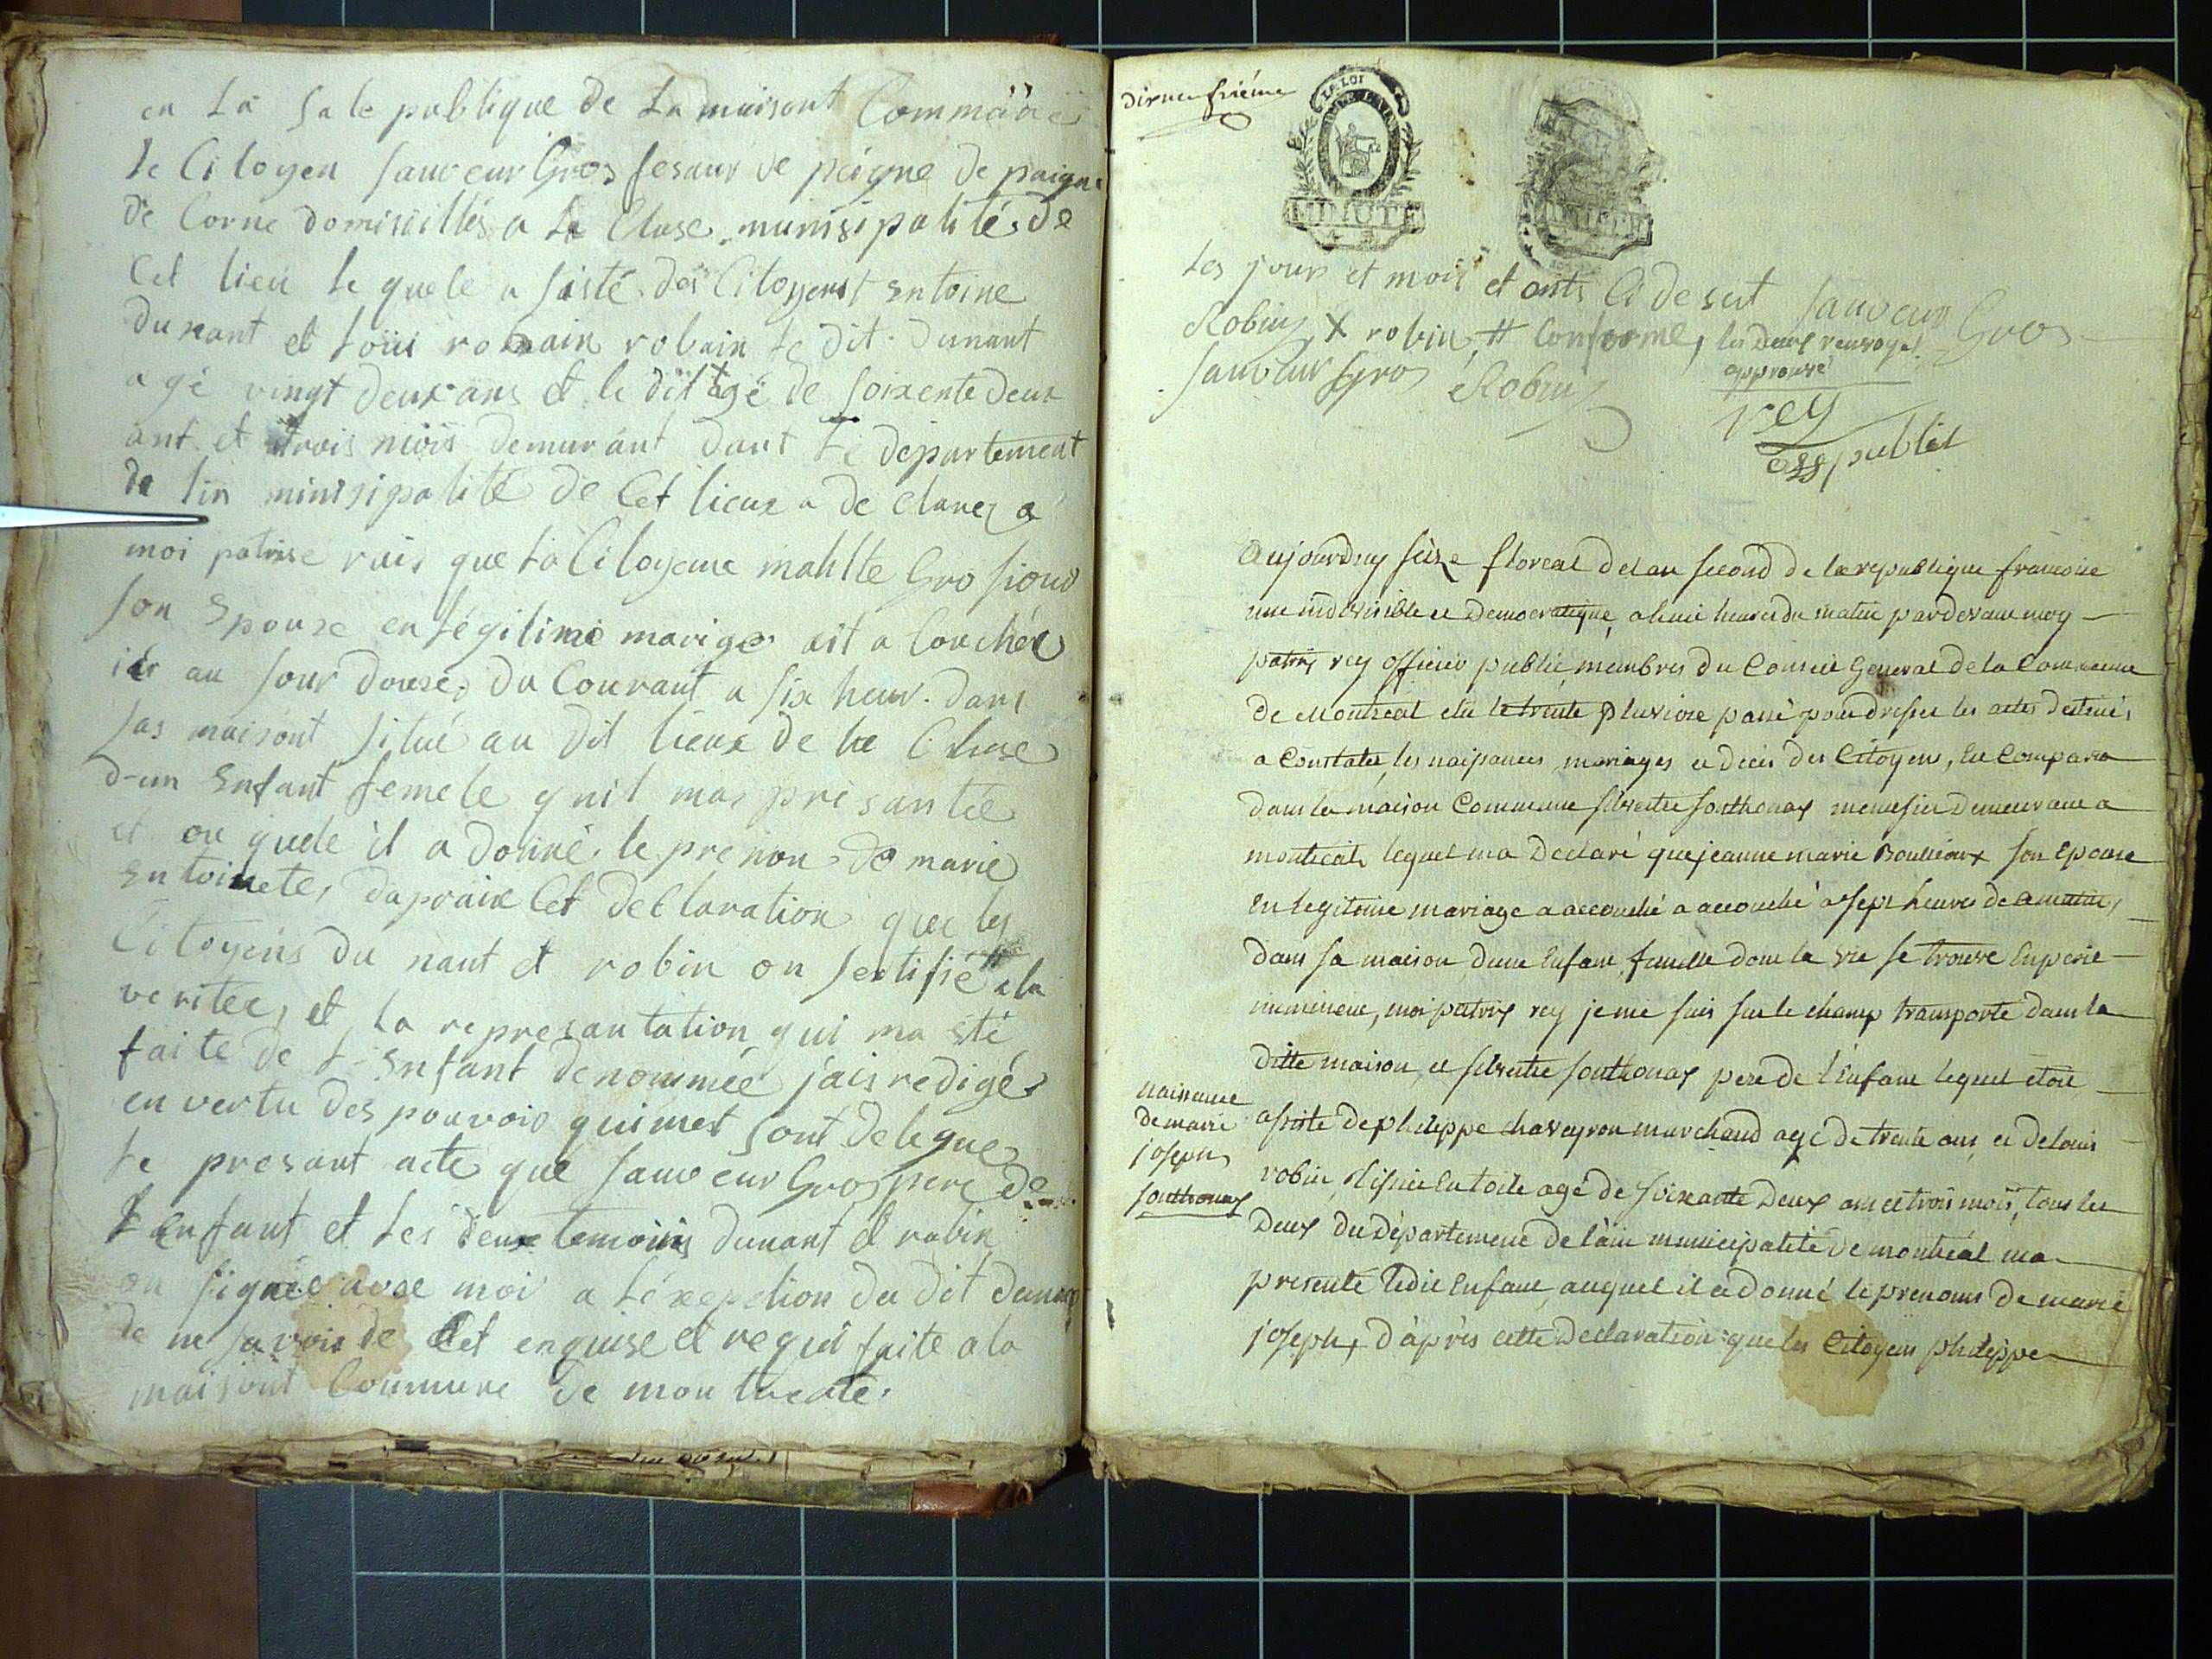 en La sale publique de La maisont Commune
le Citoyen sauveur Gros fesaur de peigne de paigne
de Corne domisillés a La Cluse munisipalité de
Cet lieu le quele a sisté des Citoyenst entoine
dunant et Loüi robain le dit dunant
agé vingt deux ans et le dit + agé de soixente deux
ant et trois mois demurant dant Le département
de lin minisipalité de Cet lieux a de Clarez a
moi patrise rais que La Citoyene
son Epouse en Légitime marige ait a Couchée
ier au sour douse du Courant a six heur dans
sas maisont situé au dit lieux de la Cluse
d-un Enfant femele quil mas présantée
et au quele il a donné le prenon de marie
Entoinete, dapraix Cet déClaration que les
Citoyens du nant et robin on sertifié # a la
veritee, et La represantation qui ma été
faite de L-Enfant denommée j'ais redigé
en vertu des pouvois quimet sont delegue
Le presant acte que sauveur Gros pere de
L'enfant et Les deux temoins dunant et robin
on signée avee moi a Léxepction du dit dunant
de ne savoir de Cet enquise et requi faite a la
maisont Commune de mon
LA LOI
MINUTE
Les jours et mois et ants Ci desut sauveur Gros
Robin X robin, # Conforme, les deux renvoyes
approuvé
sauveur Gros Robin
rey
off publis
aujourdhuy seize floreal de lan second de la republique francoise
une indivisible et Democratique, a huit heures du matin pardevant moy
patris rey officier public, membres du Conseil General de la Commune
de Montreal elu le trente pluviose passé pour dresser les actes destinés
a Constater, les naissances, mariages et décès des Citoyens, Est Comparu
dans la maison Commune silvestre sonthonax menusier demeurant a
montreal, lequel ma Declaré que jeanne marie Boullioux son Epouse
En Legitime mariage a accouché a accouché a sept heures de ce matin
dans sa maison dune Enfant femelle dont la vie se trouve En perie
imminent, moi patris rey je me suis sur le champ transporté dans la
ditte maison, et silvestre sonthonax pere de l'Enfant lequel etoit
assisté de philippe chaveyron marchand agé de trente ans, et de louis
robin, tissier En toile agé de soixante Deux ans et trois mois, tous les
Deux du département de l'ain municipalité de montréal ma
presenté ledit Enfant, auquel il a donné le prenoms de marie
joseph, d'après cette Declaration que les Citoyens philippe
naissance
de marie
joseph
sonthonax